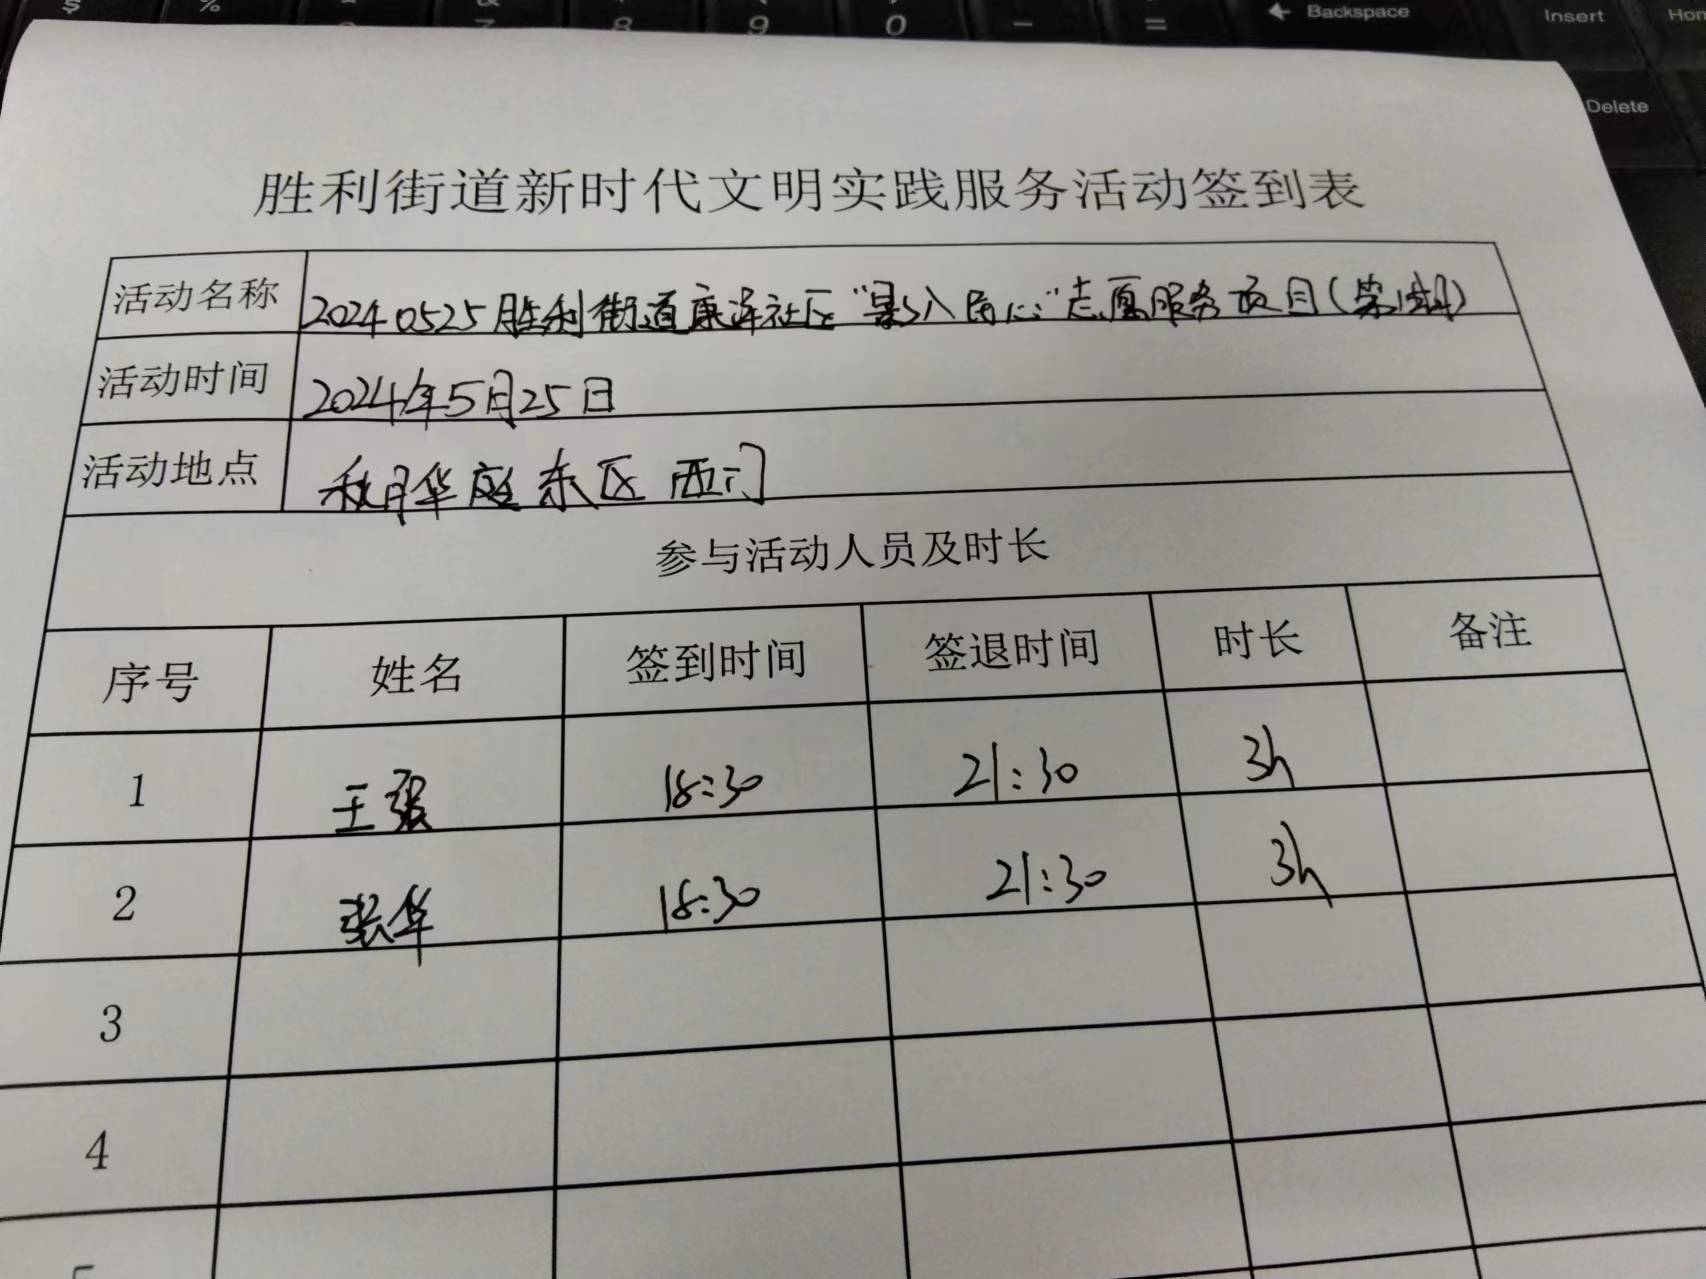 $ % & 7 8 9 0 - = ← Backspace Insert
Delete
胜利街道新时代文明实践服务活动签到表
活动名称 20240525胜利街道康泽社区“影入民心”志愿服务项目(第1期)
活动时间 2024年5月25日
活动地点 秋月华庭东区西门
参与活动人员及时长
序号 姓名 签到时间 签退时间 时长 备注
1 王强 18:30 21:30 3h
2 张华 18:30 21:30 3h
3
4
5